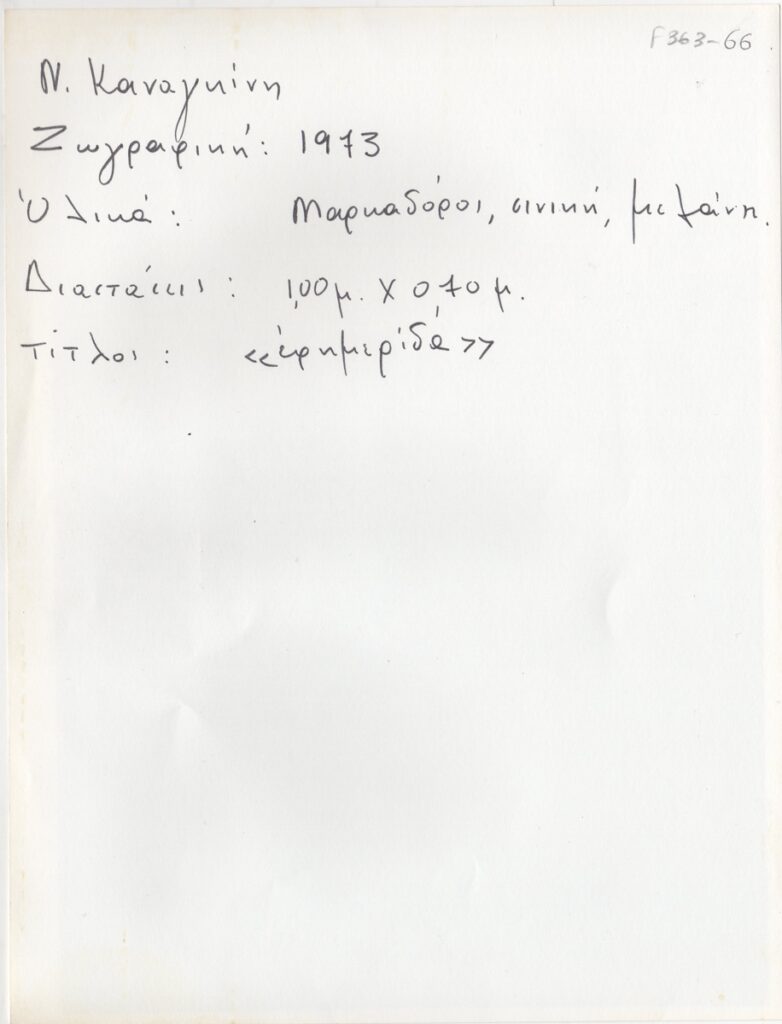 F363-66
Ν. Καναγκίνη
Ζωγραφική: 1973
Ὑλικά: Μαρκαδόροι, σινική, μελάνη.
Διαστάσεις: 1,00μ. Χ 0,70 μ.
Τίτλοι: «ἐφημερίδα»